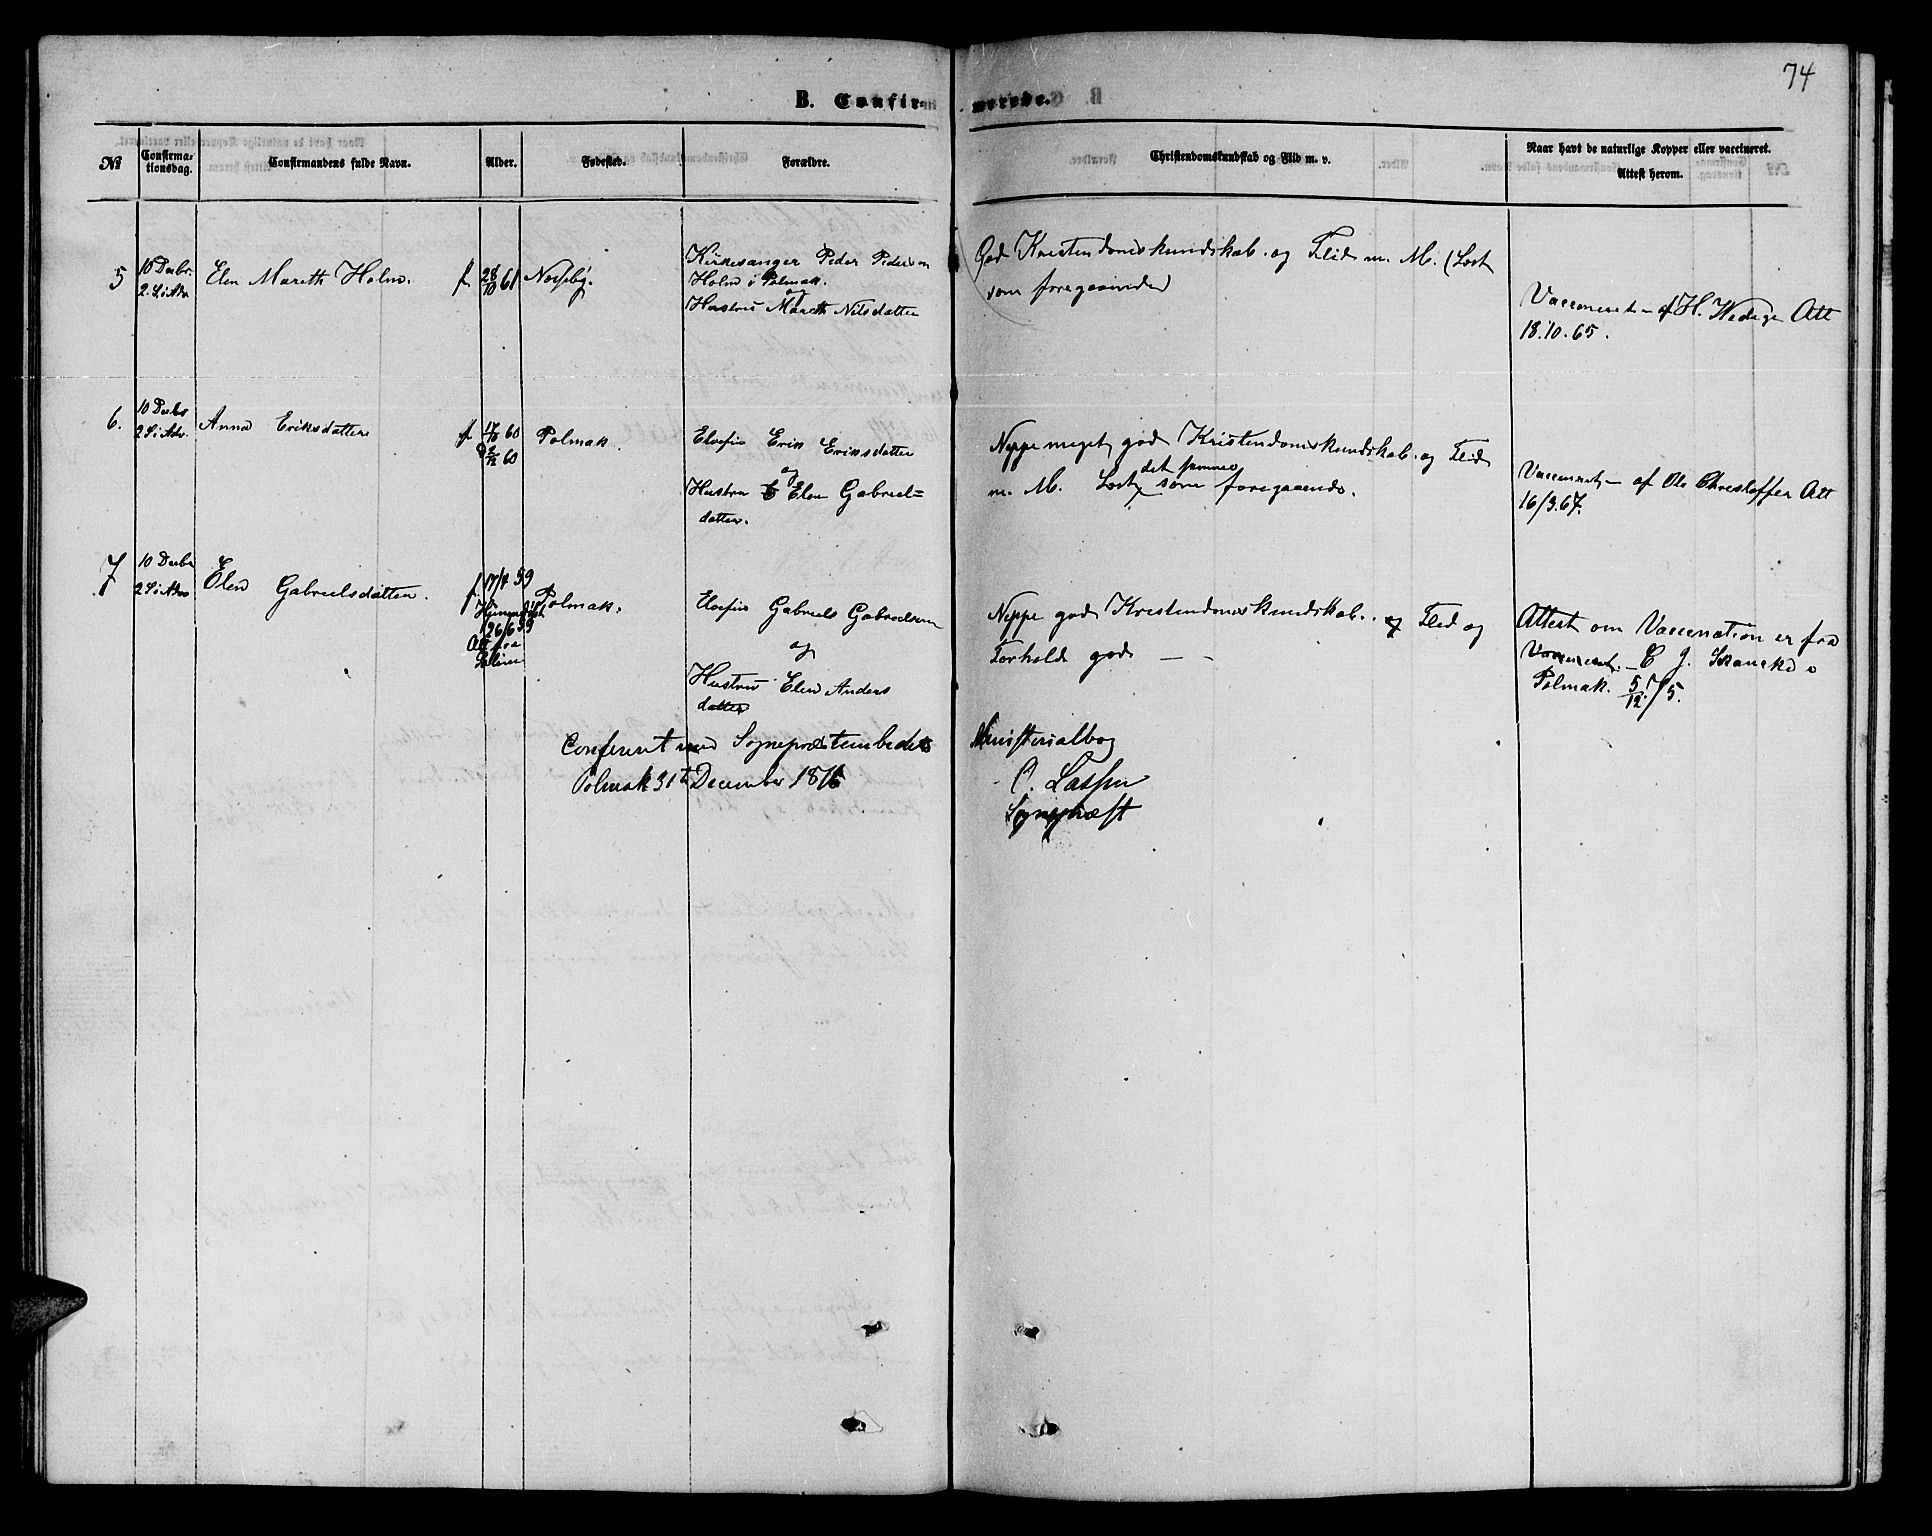 74
B. Confir-
merede.
№
Confirma-
tionsdag.
Confirmandens fulde Navn.
Alder.
Fødested.
Forældre.
Christendomskundskab og Flid m. v.
Naar havt de naturlige Kopper eller vaccineret.
Attest herom.
5
10 Decbr.
2. S. i Adv
Elen Mareth Holm.
f. 28/10 61
Kirkesanger Peder Pedersen
Holm i Polmak.
og
Hustru Mareth Nilsdatter
God Kristendomskundskab. og Flid m. M. (Lært
som foregaaende)
Vaccineret - af H. Wedege Att
18.10.65.
6.
10 Decbr
2 S. i Adv.
Anna Eriksdatter
f. 60
60
Polmak.
Elvefin Erik Eriksdatter
og
Hustru Elen Gabriel=
datter.
Neppe meget god Kristendomskundskab. og Flid
m. M. Lært det samme som foregaaende.
Vaccineret - af Ole Christoffer Att
16/3.67.
7
10 Decbr
2 S i Adv
Elen Gabrielsdatter.
f. 17/4 59
26/6 59
Att fra
Polmak.
Elvefin Gabriels Gabrielsen
og
Hustru Elen Anders
datter
Neppe god Kristendomskundskab. og Flid og
Forhold god —
Attest om Vaccination er fra
Vaccineret. - C J. Kranke i
Polmak. 5/12 75.
Confereret med Sognepræstembedets
Ministerialbog
Polmak 31te December 1876
O. Lassen
Sognepræst